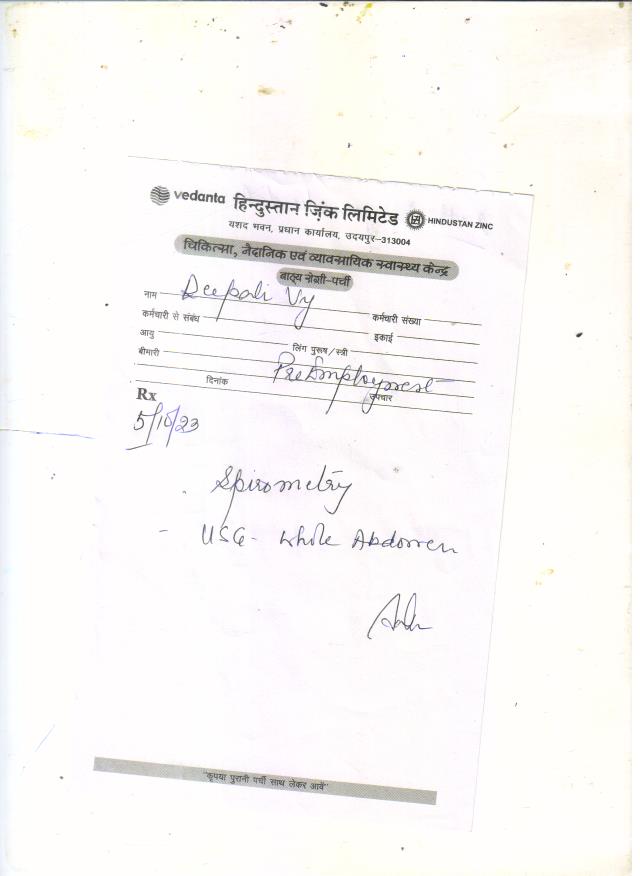 vedanta हिन्दुस्तान ज़िंक लिमिटेड HINDUSTAN ZINC
यशद भवन, प्रधान कार्यालय, उदयपुर-313004
चिकित्सा, नैदानिक एवं व्यावसायिक स्वास्थ्य केन्द्र
बाह्य रोगी-पर्ची
नाम Deepali Vy कर्मचारी संख्या
कर्मचारी से संबंध इकाई
आयु लिंग पुरूष/स्त्री
बीमारी Pre Employment
दिनांक उपचार
Rx
5/10/23
Spirometry
- USG- Whole Abdomen
"कृपया पुरानी पर्ची साथ लेकर आवें"